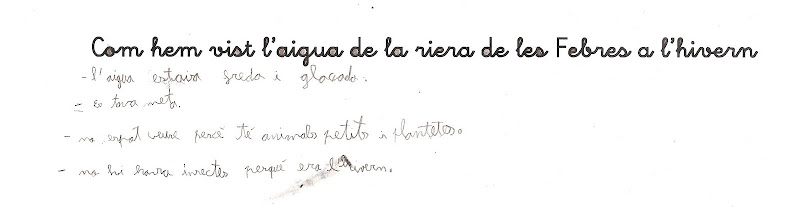 Com hem vist l'aigua de la riera de les Febres a l'hivern
- l'aigua estava freda i glaçada.
- es tava neta.
- no espot veure percè té animals petits i plantetes.
- no hi havia insectes perquè era l'hivern.